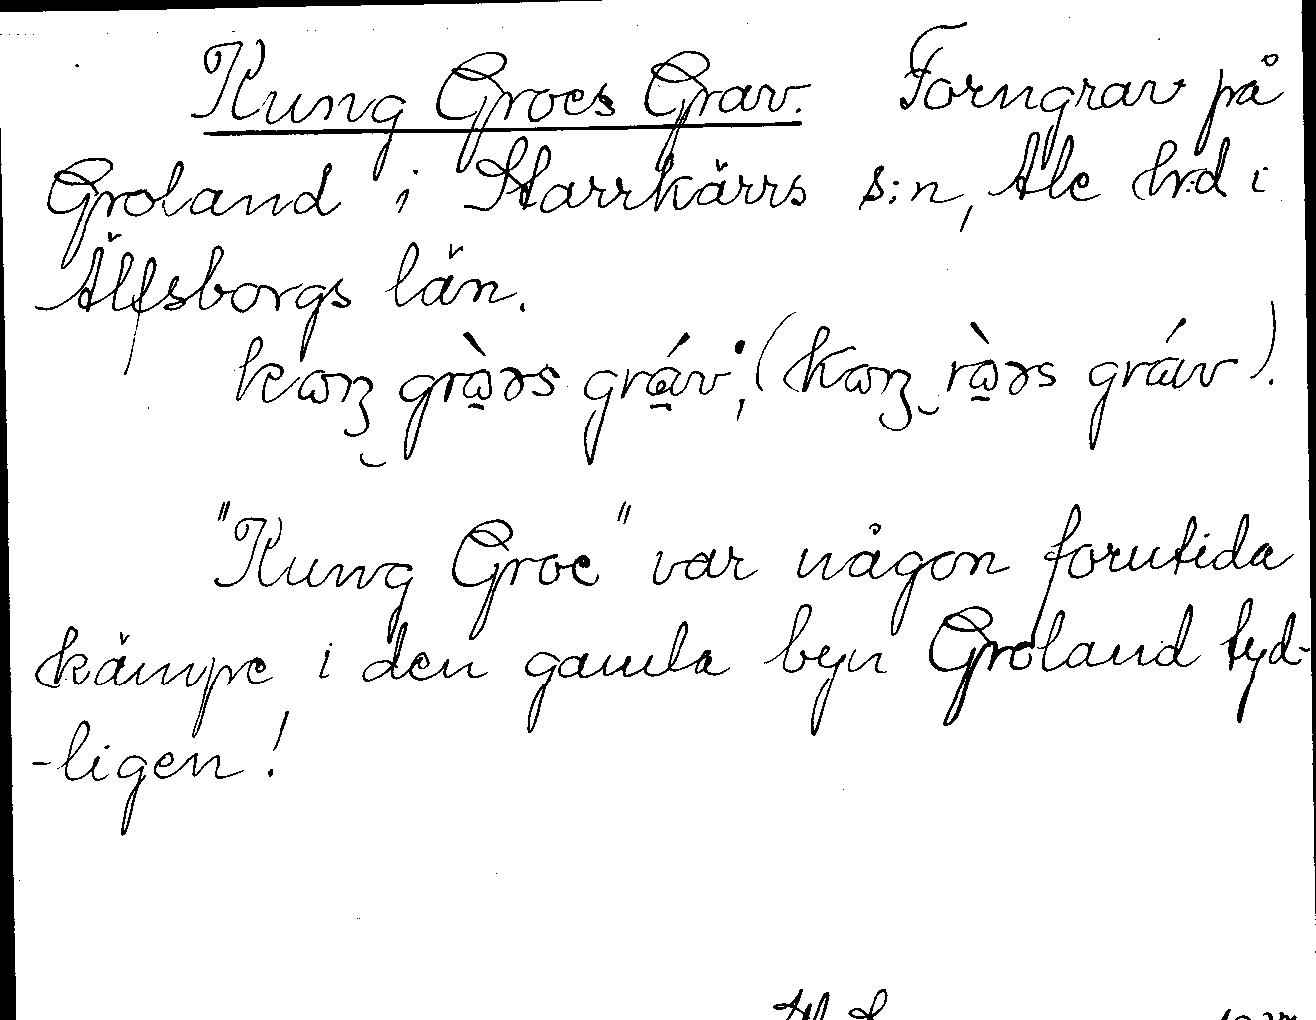 Kung Groes Grav. Forngrav på
Groland i Starrkärrs s:n, Ale hrd i
Älfsborgs län.
gráv
"Kung Groe" var någon forntida
kämpe i den gamla byn Groland tyd-
-ligen!